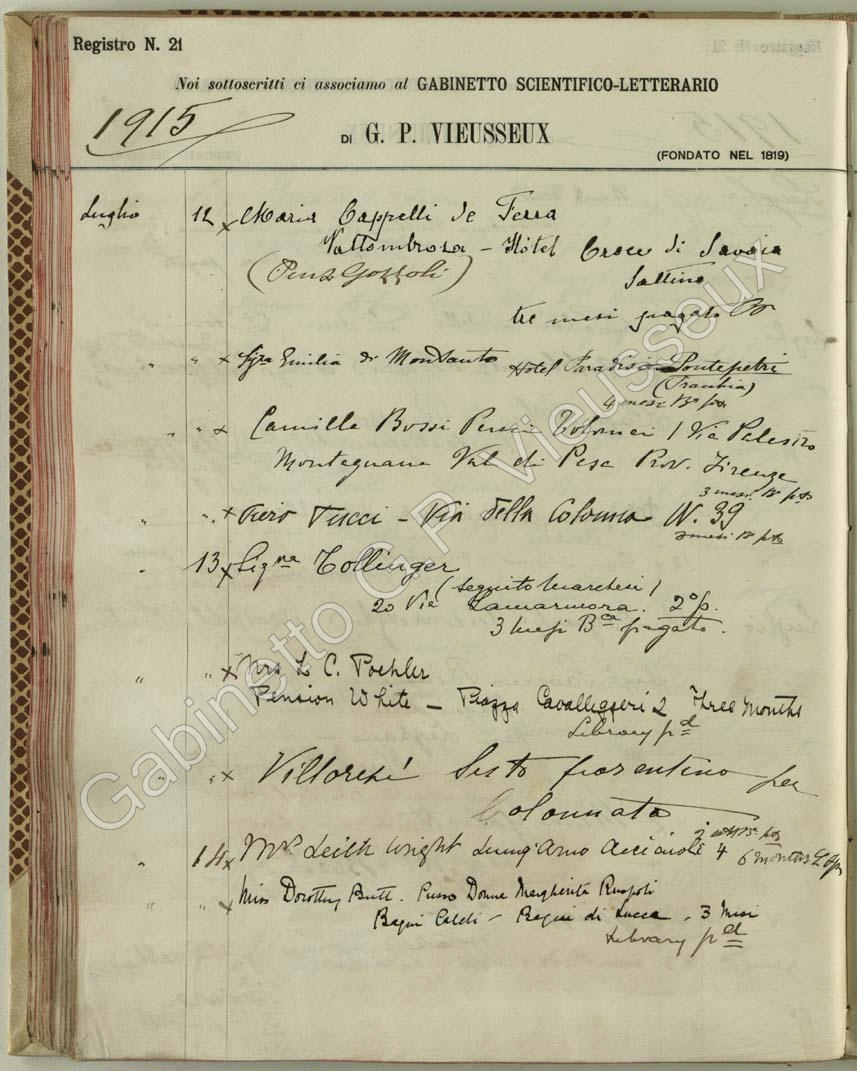 Registro N. 21
Noi sottoscritti ci associamo al GABINETTO SCIENTIFICO-LETTERARIO
1915
DI G. P. VIEUSSEUX
(FONDATO NEL 1819)
Luglio 12 x Maria Cappelli de Ferra
Vallombrosa – Hôtel Croce di Savoia
(Pens. Gozzoli) Saltino
tre mesi pagato
" " x Sigra Emilia di Montsanto Hotel Paradiso Pontepetri
(Pracchia)
4 mesi
" " x Camilla Bossi Pucci Tolomei / Via Palestro
Montegnana Val di Pesa Prov. Firenze
3 mesi
" " x Piero Tucci – Via della Colonna N. 39
3 mesi
" 13 x Signa Tollinger
(seguito Marchesi)
20 Via Lamarmora. 2º p.
3 mesi Bca pagato.
" " x Mrs L C. Poehler
Pension White – Piazza Cavalleggeri 2 Three Months
Library pd
" " x Villoresi Sesto fiorentino per
Colonnata
" 14 x Mrs Leith Wright Lung'Arno Acciaioli 4 6 months
" " x Miss Dorothy Butt. Presso Donna Margherita Ruspoli
Bagni Caldi – Bagni di Lucca, 3 Mesi
Library pd
Gabinetto G.P. Vieusseux